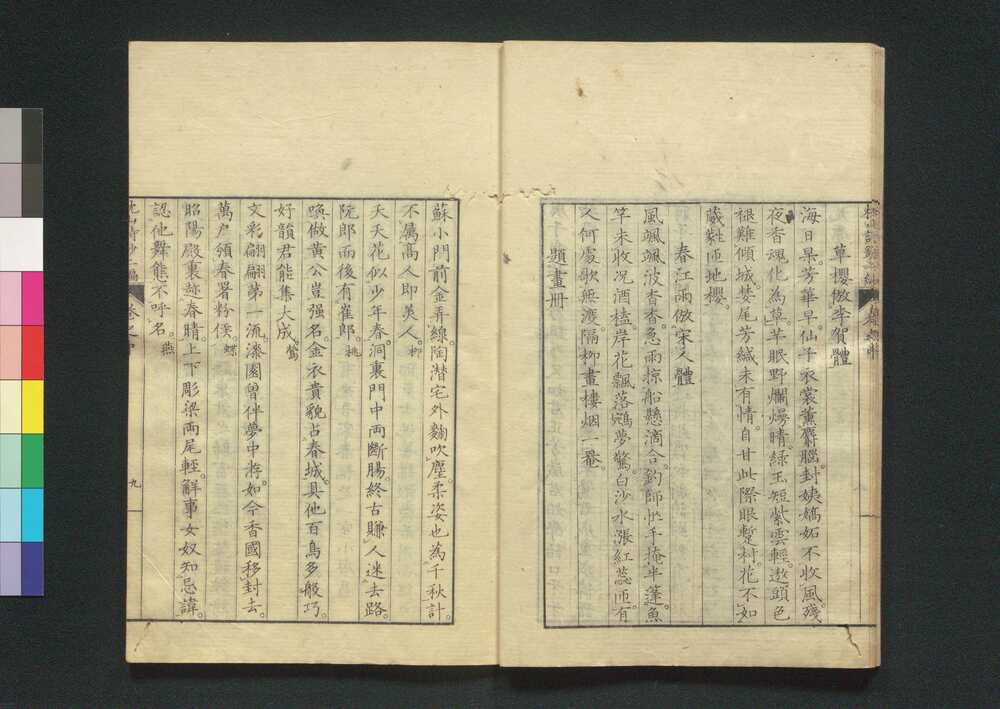 草櫻倣李賀體
海日杲芳華早仙子衣裳薫麝臘封姨嬌妬不收風殘
夜香魂化為草芊眠野爛熳晴緑玉短紫雲輕遨頭色
褪難傾城婪尾芳緘未有情自甘此際眼蹔村花不如
蔵雞匝地櫻
春江雨倣宋人體
風颯颯波杳杳急雨掠船懸滴合釣師忙手掩半篷魚
竿未收况酒榼岸花飄落鴎夢驚白沙水漲紅蕊匝有
人何處歌無渡隔柳畫樓烟一罨
題畫册
蘇小門前金弄線陶潜宅外麹吹塵柔姿也為千秋計
不属高人即美人 柳
夭夭花似少年春洞裏門中両断腸終古賺人迷去路
阮郎而後有崔郎 桃
喚做黄公豈强名金衣貴貌占春城具他百鳥多般巧
好韻君能集大成 鶯
文彩翩翩第一流漆園曽伴夢中荘如今香國移封去
萬户領春署粉侯 蝶
昭陽殿裏趁春晴上下彫梁両尾輕觧事女奴知忌諱
認他舞態不呼名 燕
九